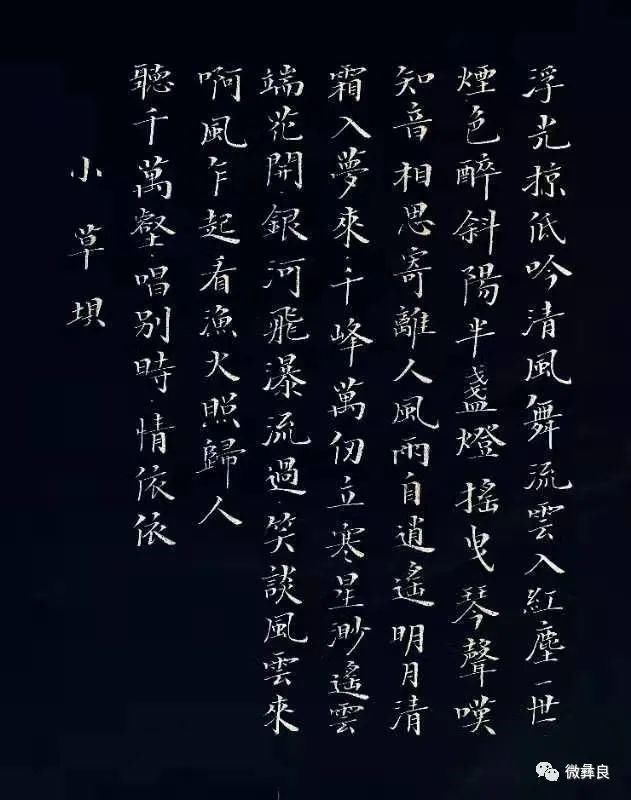 浮光掠低吟清風舞流雲入紅塵一世
煙色醉斜陽半盞燈搖曳琴聲嘆
知音相思寄離人風雨自逍遙明月清
霜入夢來千峰萬仞立寒星渺遙雲
端花開銀河飛瀑流過笑談風雲來
啊風乍起看漁火照歸人
聽千萬壑唱別時情依依
小草垻
微彝良